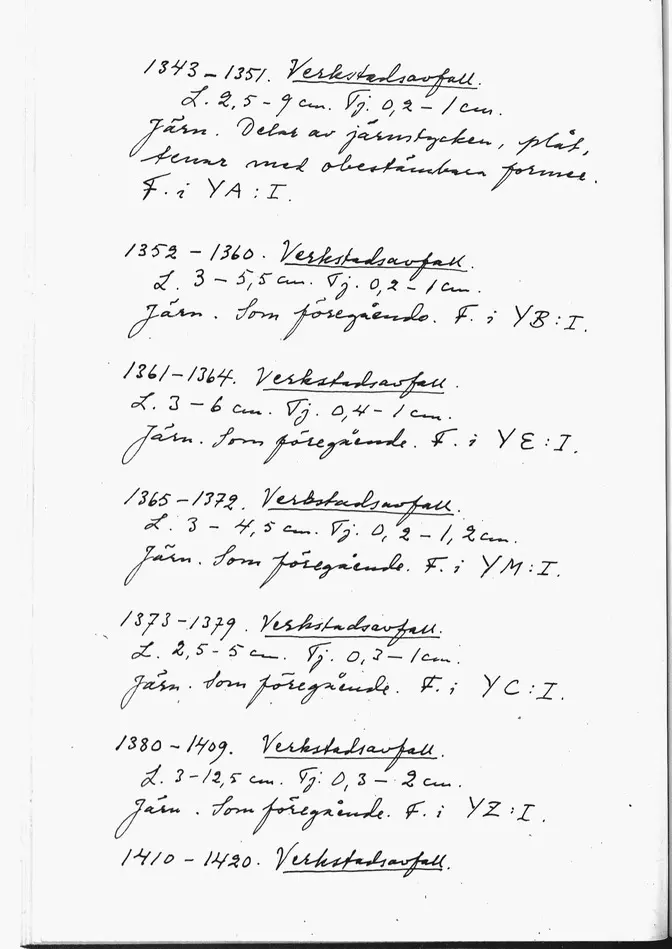 1343 – 1351. Verkstadsavfall.
L. 2,5 – 9 cm. Tj. 0,2 – 1 cm.
Järn. Delar av järnstycken, plåt,
tenar med obestämbara former.
F. i YA : I.
1352 – 1360. Verkstadsavfall.
L. 3 – 5,5 cm. Tj. 0,2 – 1 cm.
Järn. Som föregående. F. i YB : I.
1361 – 1364. Verkstadsavfall.
L. 3 – 6 cm. Tj. 0,4 – 1 cm.
Järn. Som föregående. F. i YE : I.
1365 – 1372. Verkstadsavfall.
L. 3 – 4,5 cm. Tj. 0,2 – 1,2 cm.
Järn. Som föregående. F. i YM : I.
1373 – 1379. Verkstadsavfall.
L. 2,5 – 5 cm. Tj. 0,3 – 1 cm.
Järn. Som föregående. F. i YC : I.
1380 – 1409. Verkstadsavfall.
L. 3 – 12,5 cm. Tj. 0,3 – 2 cm.
Järn. Som föregående. F. i YZ : I.
1410 – 1420. Verkstadsavfall.